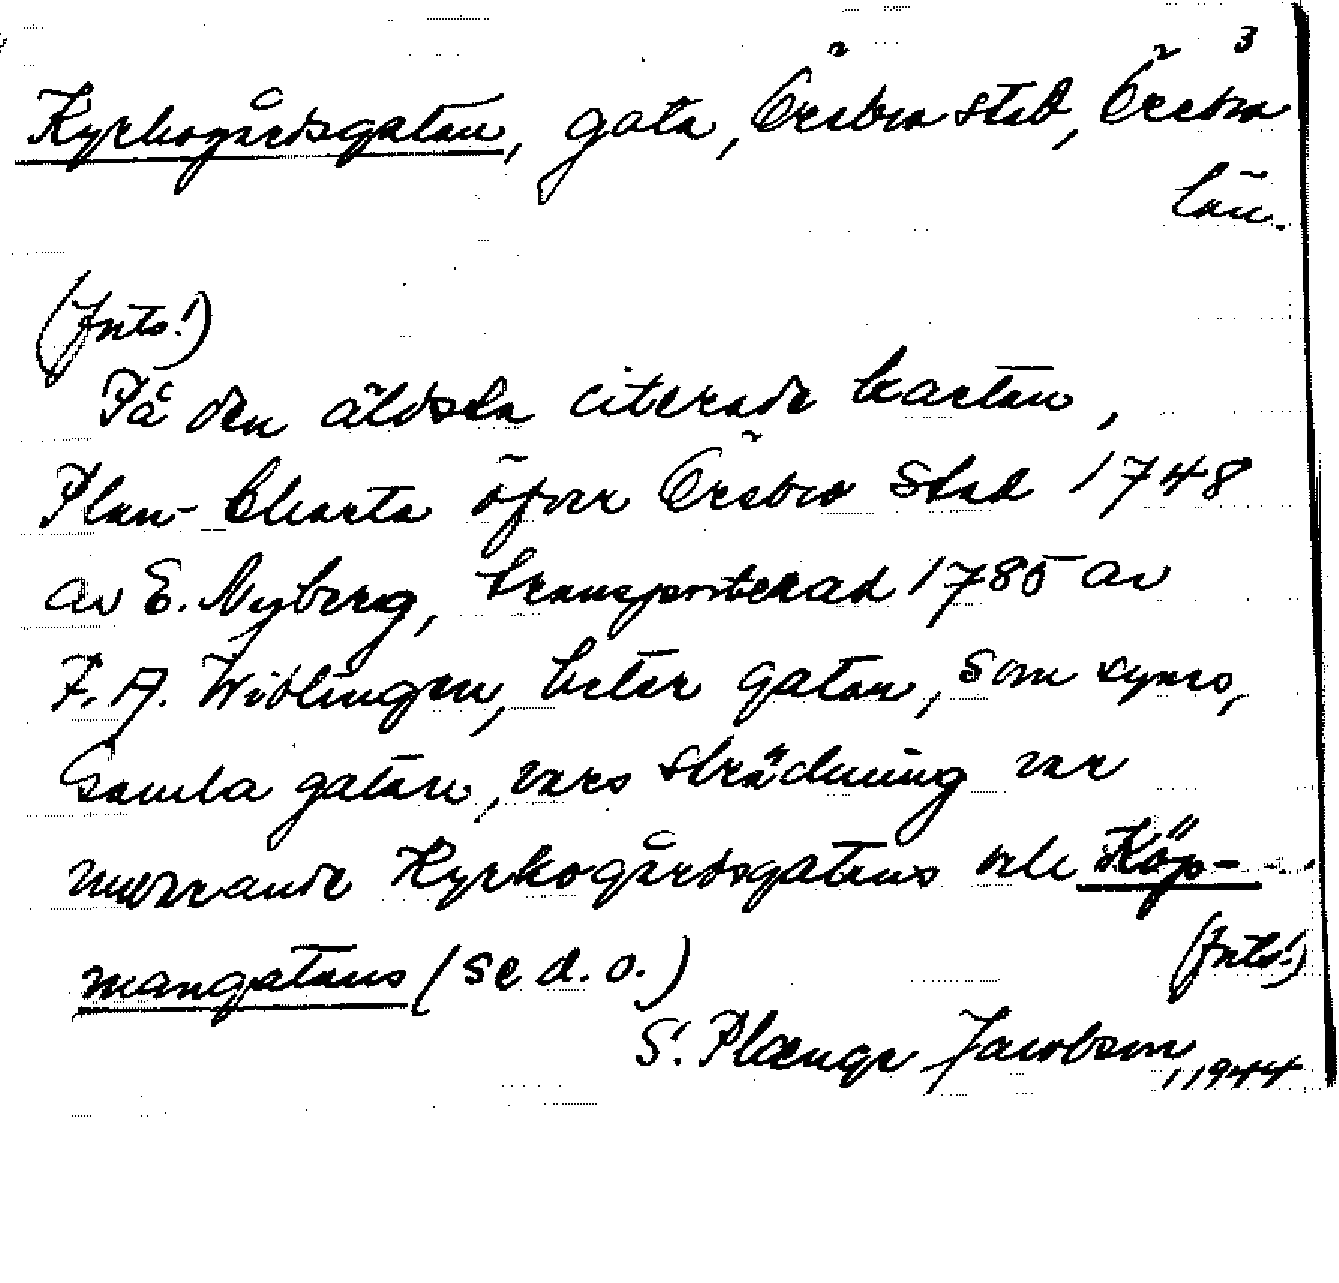 3
Kyrkogårdsgatan, gata, Örebro stad, Örebro
län.
(forts.!)
På den äldsta citerade kartan,
Plan-Charta öfver Örebro Stad 1748
av E. Nyberg, transporterad 1785 av
F. A. Wiblingen, heter gatan, som synes,
Gamla gatan, vars sträckning var
nuvarande Kyrkogårdsgatans och Köp-
mangatans (se d. o.)
(forts.!)
S. Plænge Jacobson, 1944